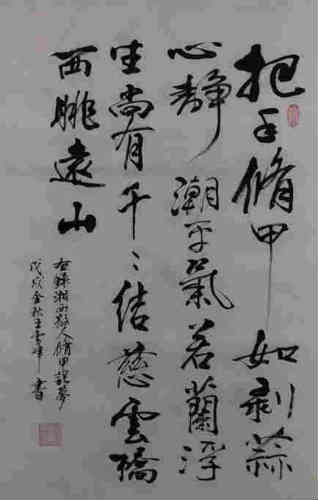 把手脩甲如剥蒜
心靜潮平氣若蘭浮
生尚有千千结慈雲橋
西眺遠山
右錄湘西人脩甲說夢
戊戌金秋王峰書